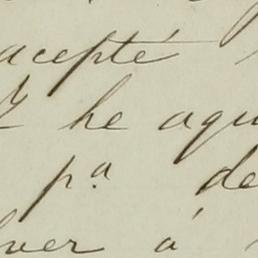 acepté
he aqu
pª de
lver á